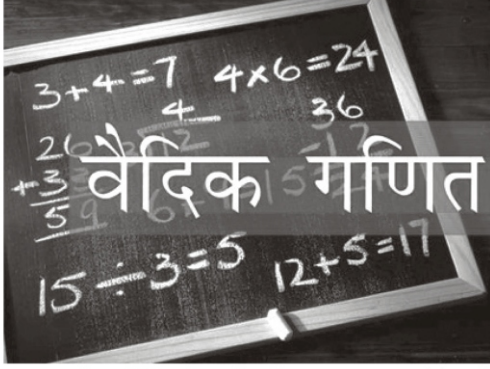 3+4=7 4×6=24
4 36
26
+ 3
वैदिक गणित
5 9
15÷3=5 12+5=17